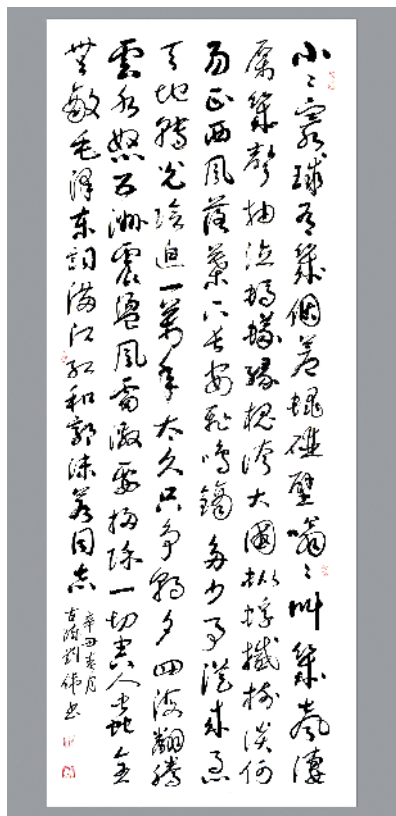 小〻寰球有幾個蒼蠅碰壁嗡〻叫幾聲凄
厲幾聲抽泣螞蟻緣槐誇大國蚍蜉撼樹談何
易正西風落葉下長安飛鳴鏑多少事從來急
天地轉光陰迫一萬年太久只爭朝夕四海翻騰
雲水怒五洲震盪風雷激要掃除一切害人蟲全
無敵毛澤東詞滿江紅和郭沫若同志
辛丑春月
劉偉書